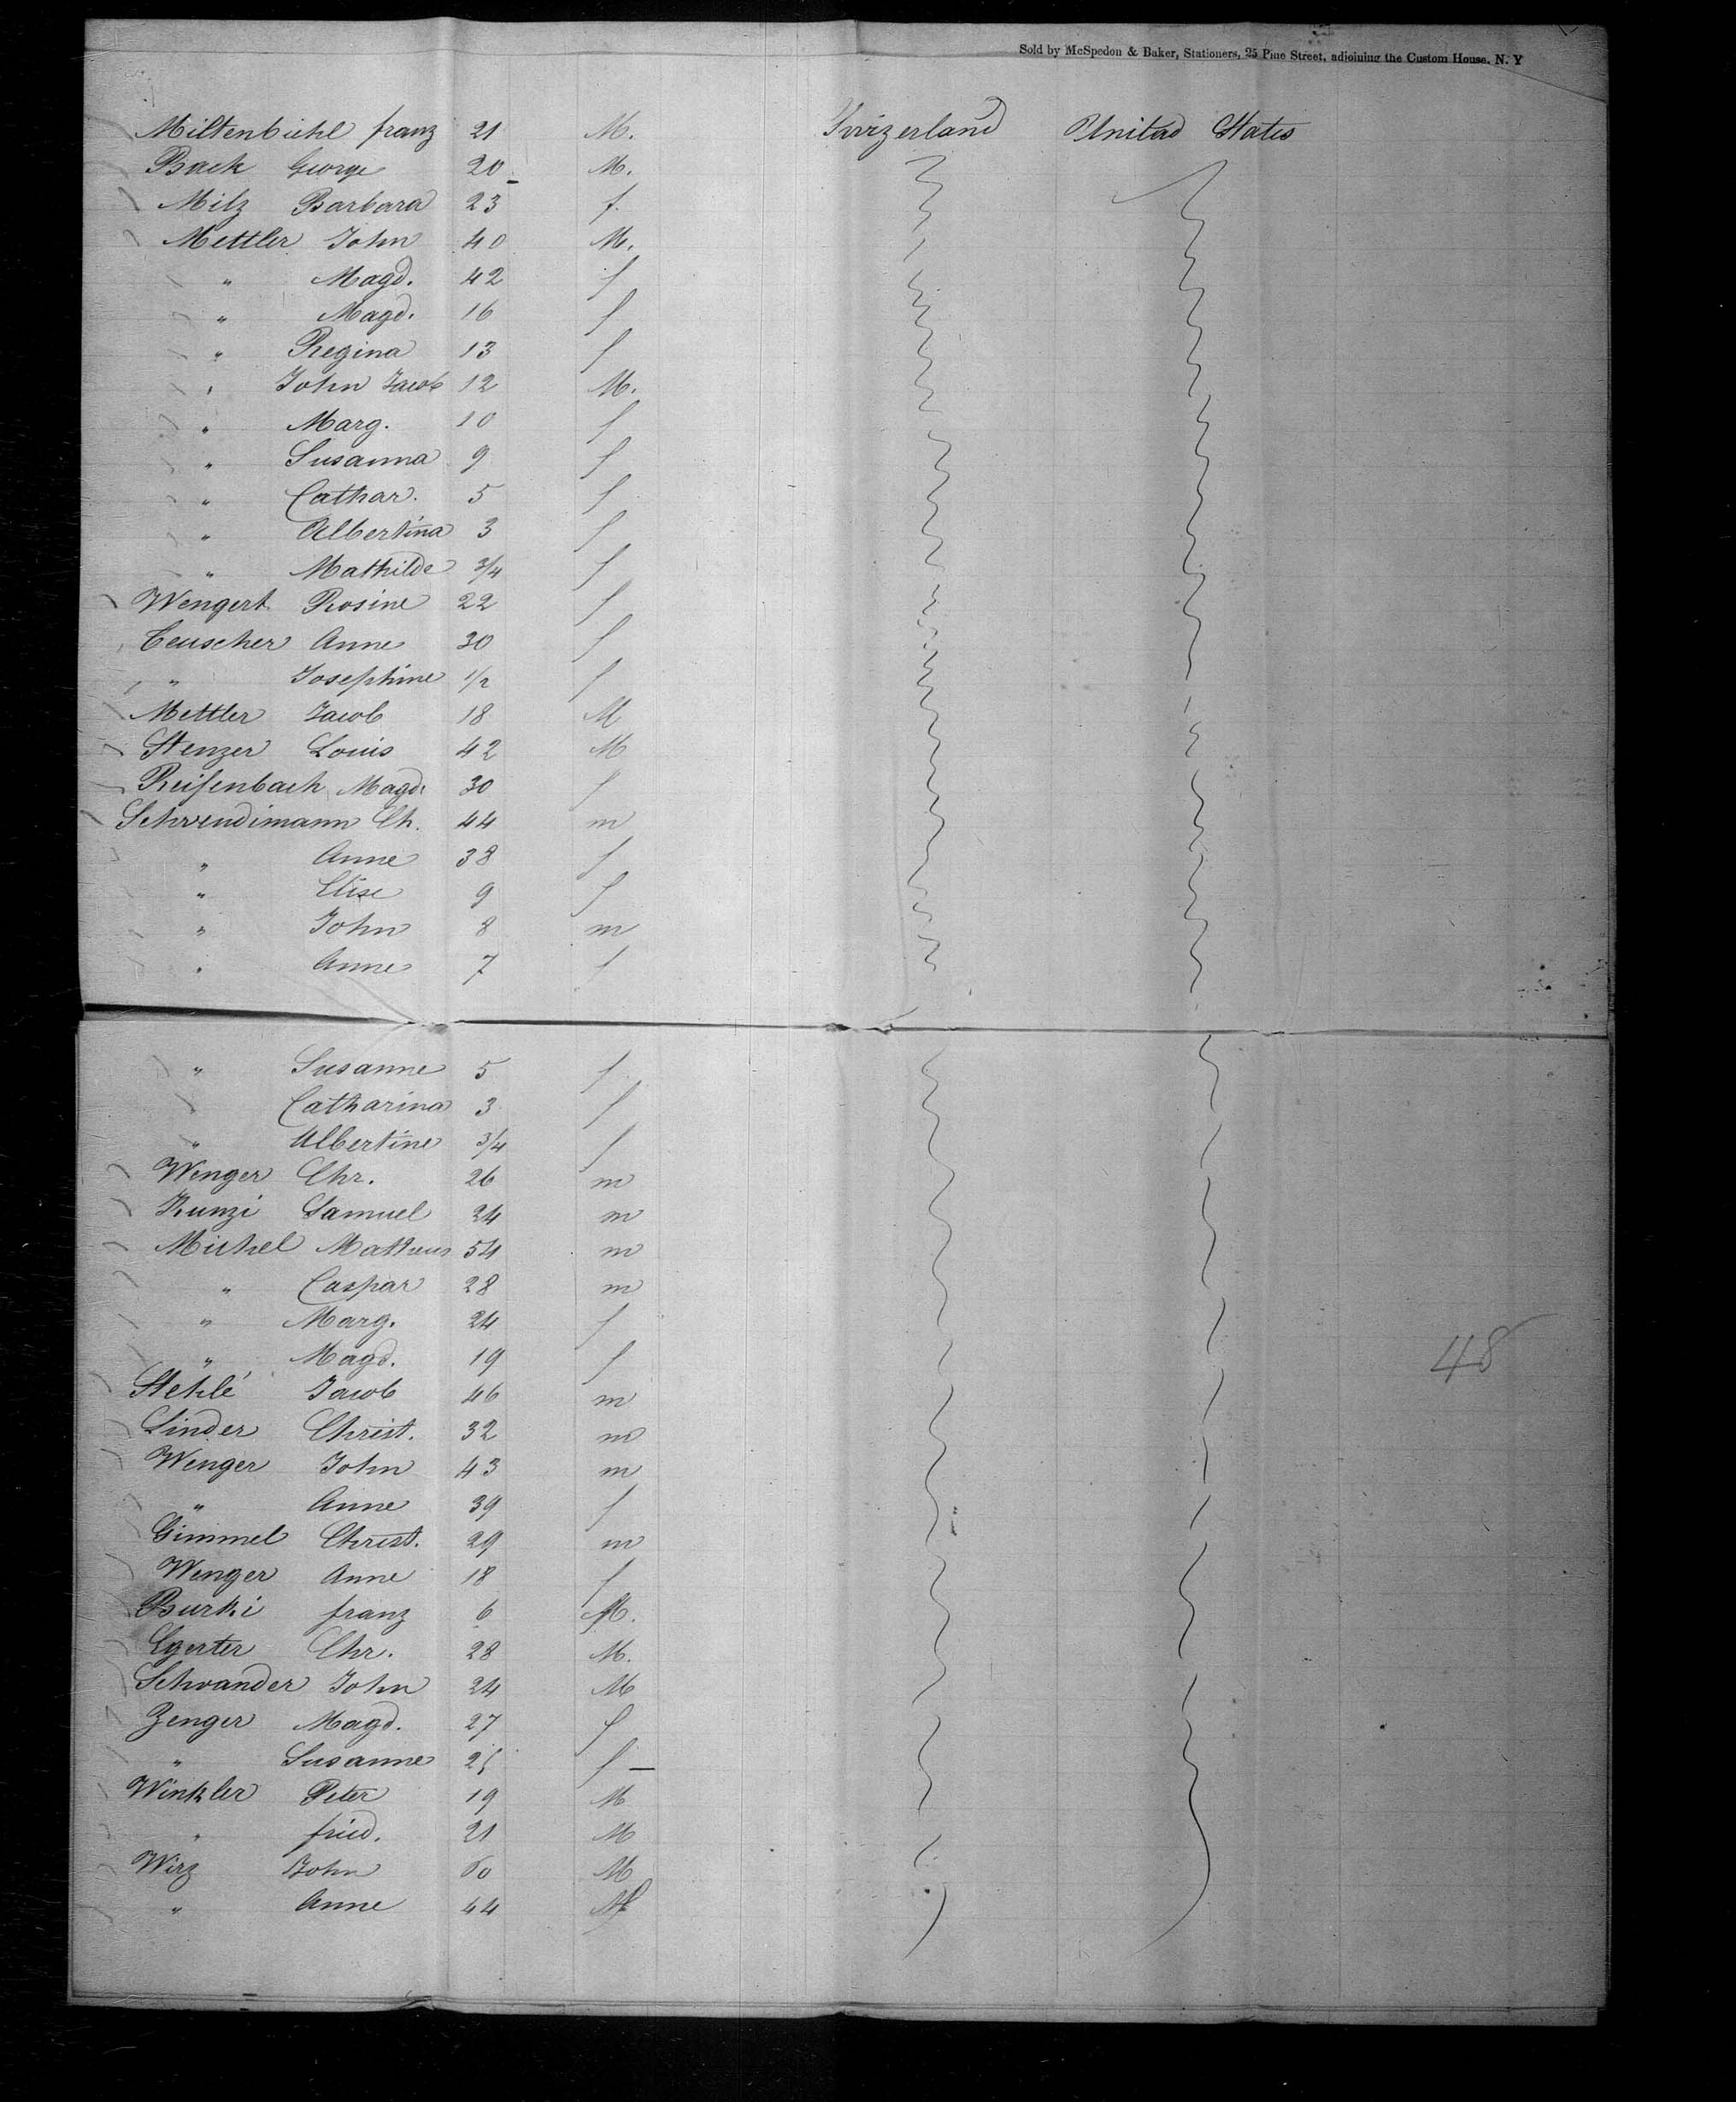 Sold by McSpedon & Baker, Stationers, 25 Pine Street, adjoining the Custom House. N. Y
Miltenbichl franz 21 M. Swizerland United States
Back George 20 M.
Milz Barbara 23 f.
Mettler John 40 M.
" Magd. 42 f
" Magd. 16 f
" Regina 13 f
" John Jacob 12 M.
" Marg. 10 f
" Susanna 9 f
" Cathar. 5 f
" Albertina 3 f
" Mathilde 3/4 f
Wengert Rosine 22 f
Teuscher Anne 30 f
" Josephine 1/2 f
Mettler Jacob 18 M
Stenzer Louis 42 M
Reifenbach Magd. 30 f
Schwendimann Ch. 44 m
" Anne 38 f
" Elise 9 f
" John 8 m
" Anne 7 f
" Susanne 5 f
Catharina 3 f
" Albertine 3/4 f
Wenger Chr. 26 m
Kunzi Samuel 24 m
Michel Mattheus 54 m
" Caspar 28 m
" Marg. 24 f
" Magd. 19 f
48
Stehlé Jacob 46 m
Linder Christ. 32 m
Wenger John 43 m
" Anne 39 f
Gimmel Christ. 29 m
Wenger Anne 18 f
Burki franz 6 M.
Egerter Chr. 28 M.
Schwander John 24 M
Zenger Magd. 27 f
" Susanne 25 f
Winkler Peter 19 M
" fried. 21 M
Wirz John 60 M
" Anne 44 f